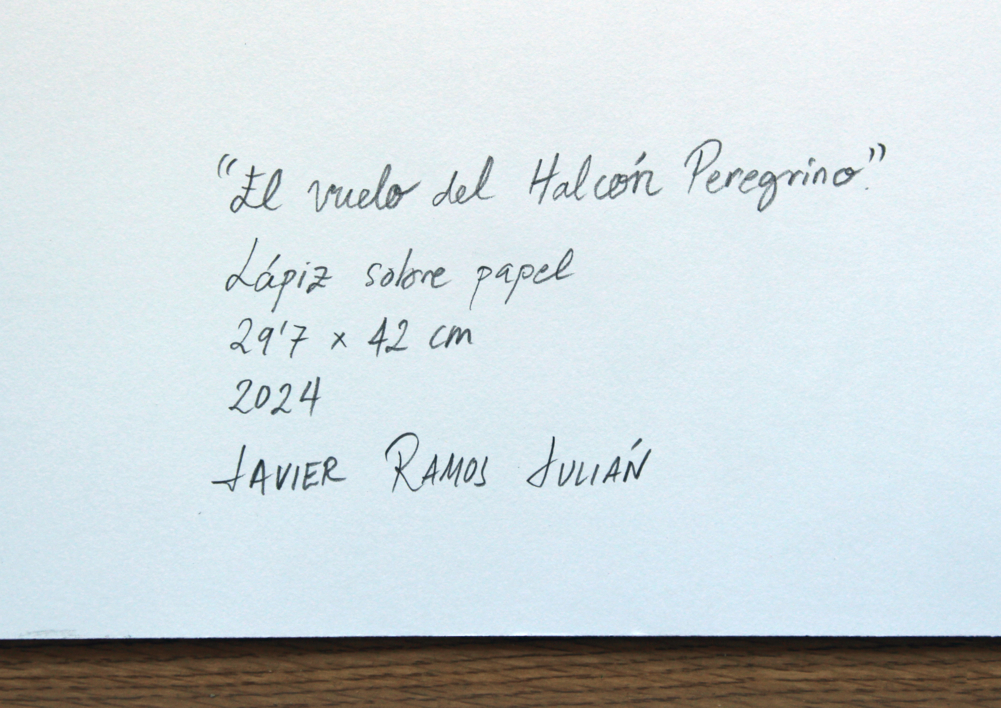 "El vuelo del Halcón Peregrino".
Lápiz sobre papel
29'7 x 42 cm
2024
JAVIER RAMOS JULIÁN